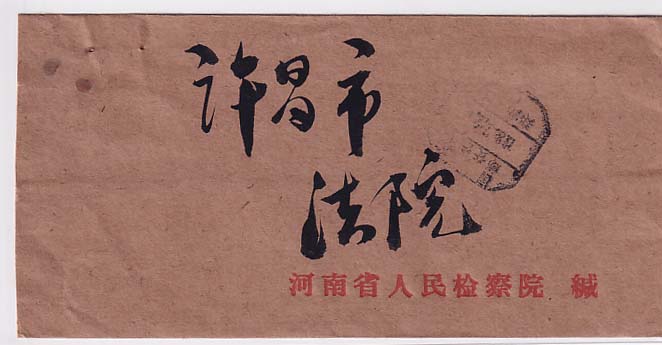 许昌市
法院
河南省人民检察院 缄